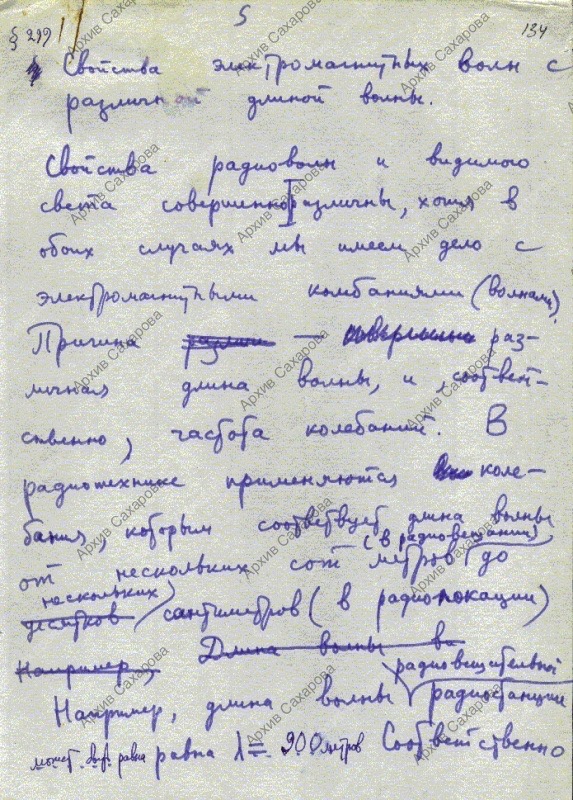 5
§ 299
134
Свойства электромагнитных волн с
различной длиной волны.
Свойства радиоволн и видимого
света совершенно различны, хотя в
обоих случаях мы имеем дело с
электромагнитными колебаниями (волнами).
Причина различия — совершенно раз-
личная длина волны, и, соответ-
ственно, частота колебаний. В
радиотехнике применяются коле-
бания, которым соответствует длина волны
(в радиовещании)
от нескольких сот метров до
нескольких
десятков сантиметров (в радиолокации)
Например, Длина волны в
радиовещательной
Например, длина волны радиостанции
может быть равна равна λ = 900 метров Соответственно
Архив Сахарова